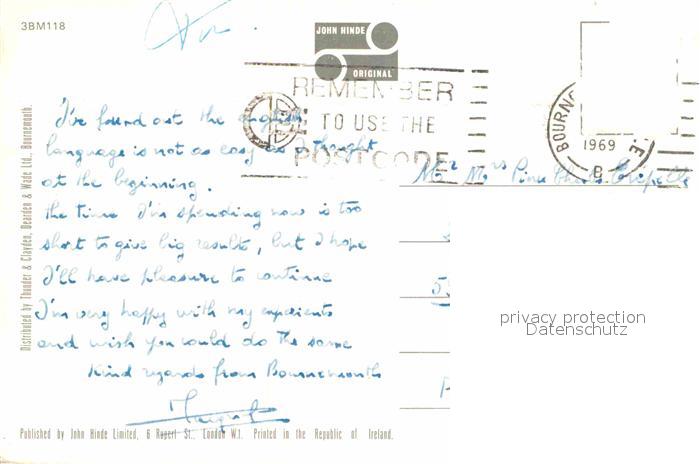 3BM118
JOHN HINDE
ORIGINAL
REMEMBER
TO USE THE
POSTCODE
BOURN
1969
B
E
I've found out the english
language is not as easy as I thought
at the beginning.
the time I'm spending now is too
short to give big results, but I hope
I'll have pleasure to continue
I'm very happy with my experients
and wish you could do the same
Kind regards from Bournemouth
Mr Mrs
privacy protection
Datenschutz
Distributed by Thunder & Clayden, Dearden & Wade Ltd., Bournemouth.
Published by John Hinde Limited, 6 Rupert St., London W.1. Printed in the Republic of Ireland.